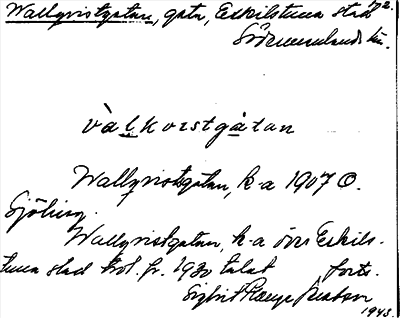 Wallqvistgatan, gata, Eskilstuna stad
Södermanlands län.
vàlkvistgàtan
Wallqvistgatan, k-a 1907 O.
Sjöberg.
Wallqvistgatan, k-a över Eskils-
tuna stad trol. fr. 1930 talet, forts.
1943.